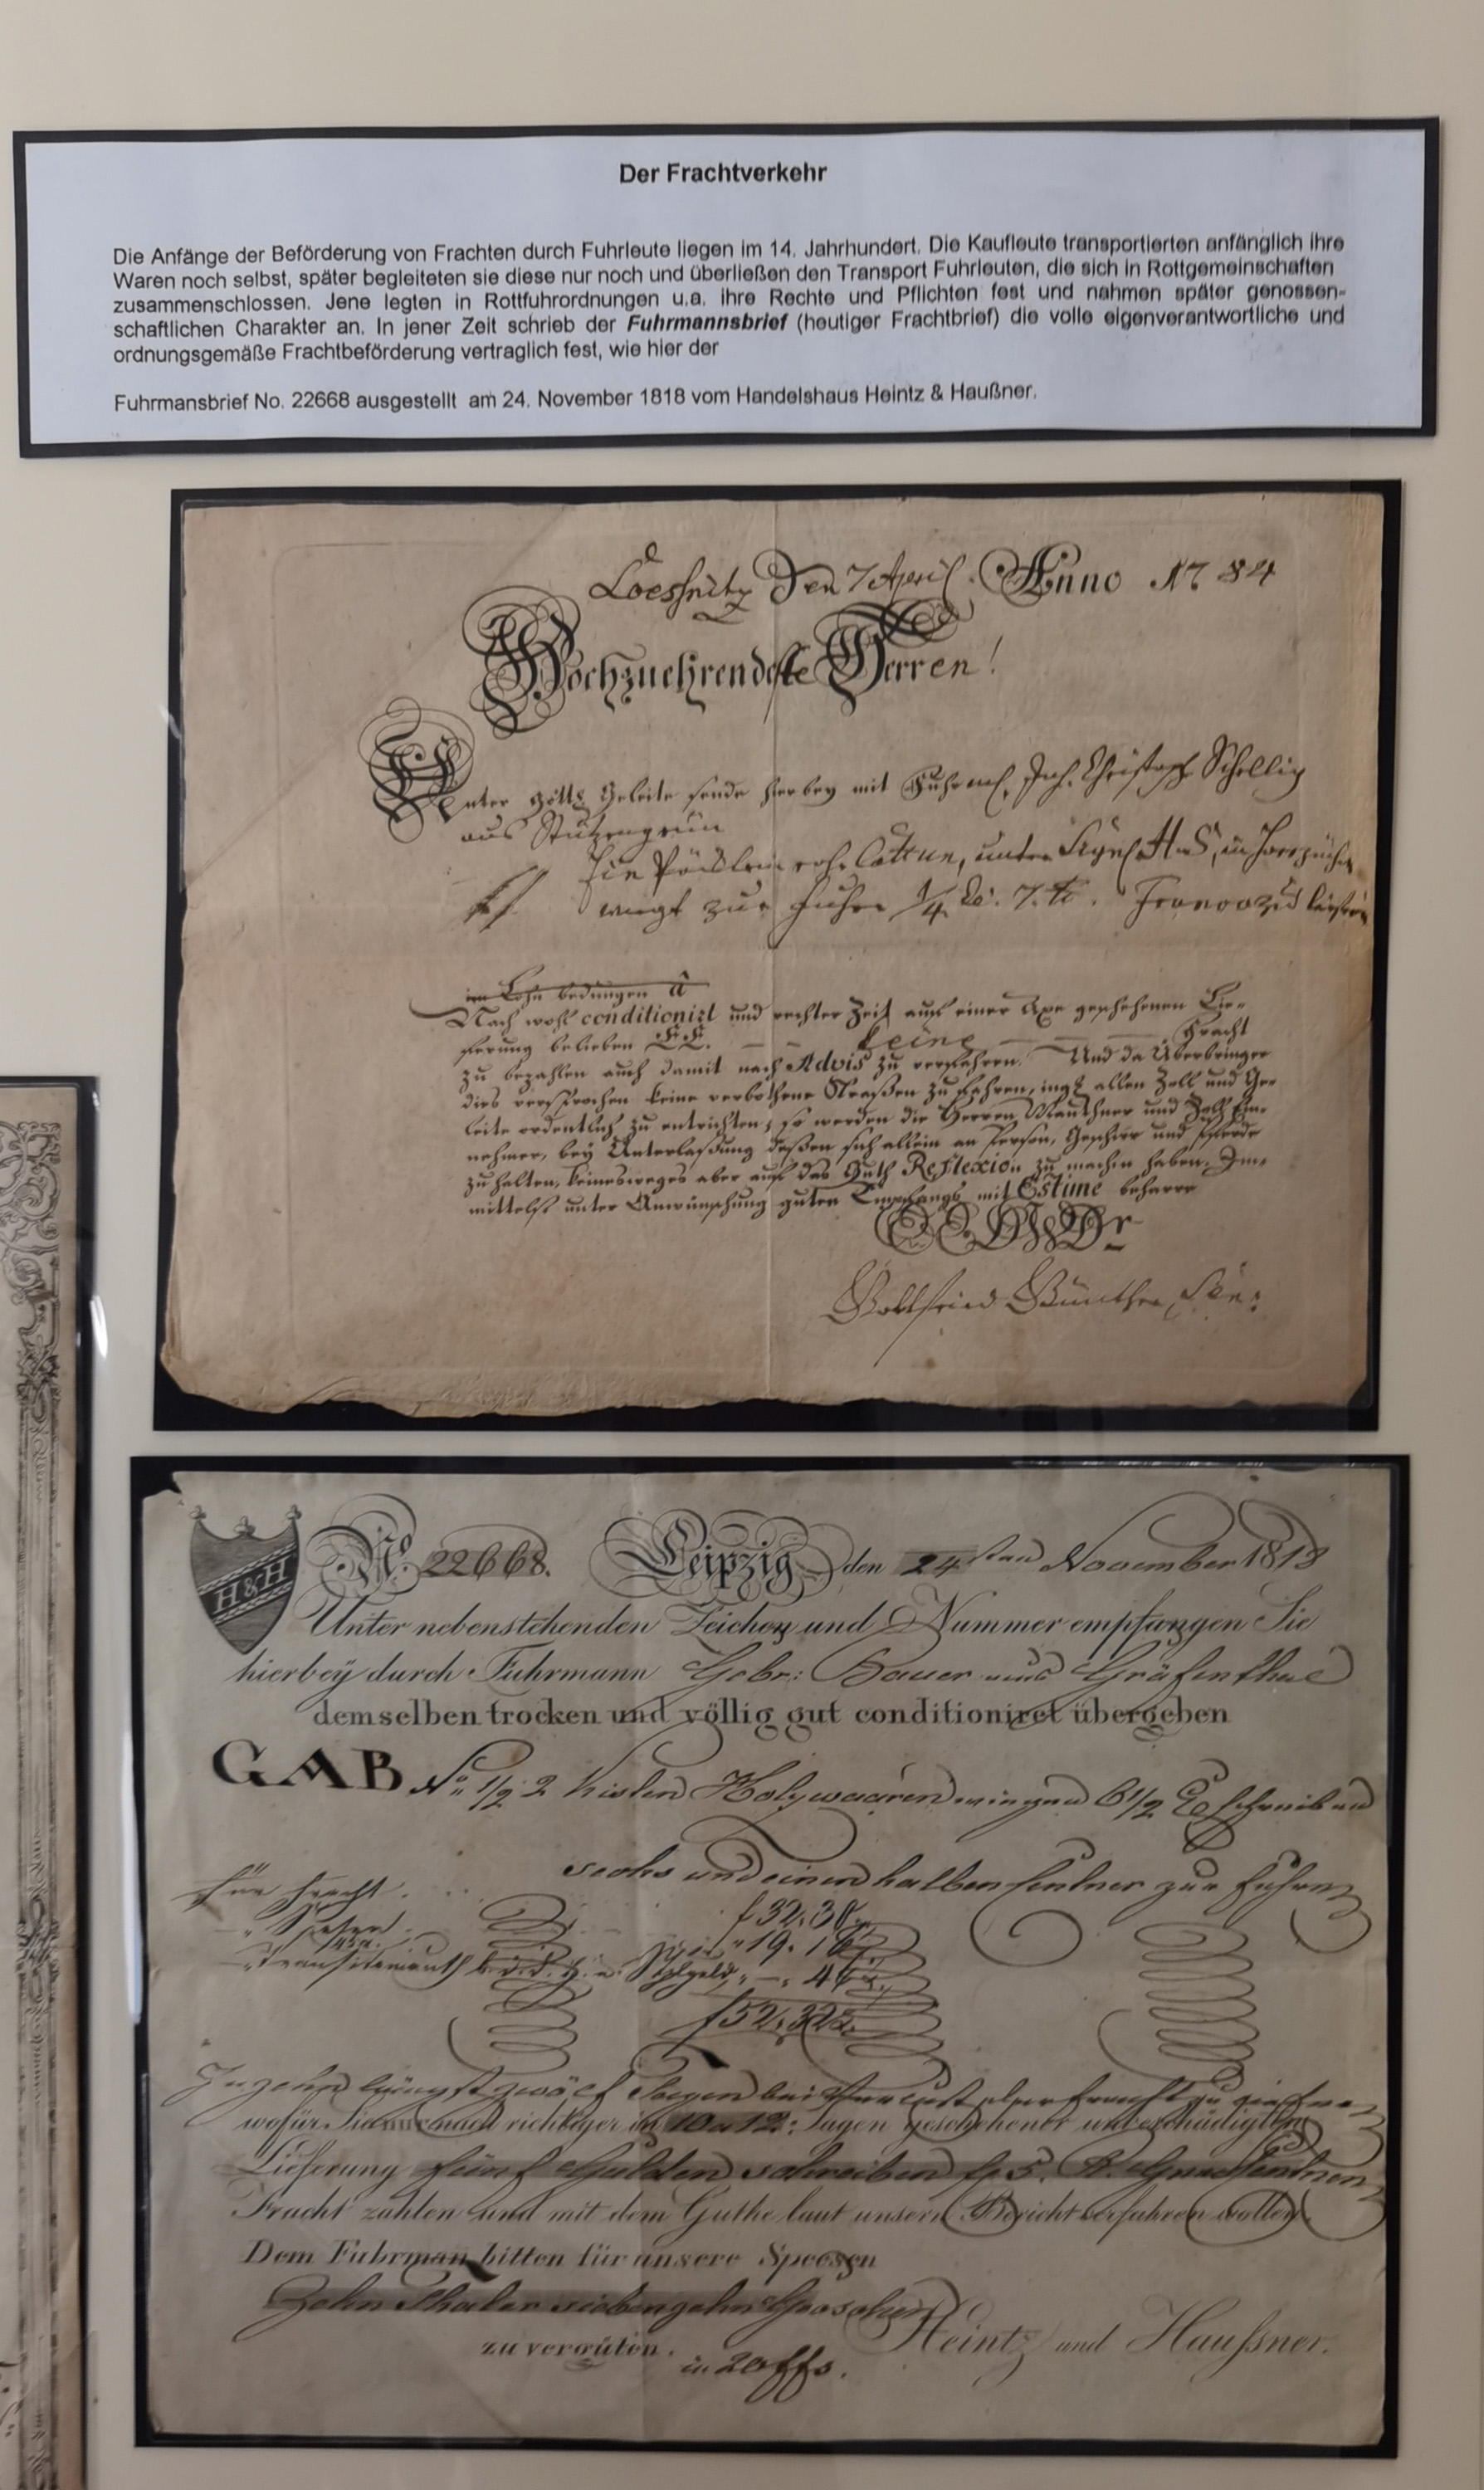 Der Frachtverkehr
Die Anfänge der Beförderung von Frachten durch Fuhrleute liegen im 14. Jahrhundert. Die Kaufleute transportierten anfänglich ihre
Waren noch selbst, später begleiteten sie diese nur noch und überließen den Transport Fuhrleuten, die sich in Rottgemeinschaften
zusammenschlossen. Jene legten in Rottfuhrordnungen u.a. ihre Rechte und Pflichten fest und nahmen später genossen-
schaftlichen Charakter an. In jener Zeit schrieb der Fuhrmannsbrief (heutiger Frachtbrief) die volle eigenverantwortliche und
ordnungsgemäße Frachtbeförderung vertraglich fest, wie hier der
Fuhrmansbrief No. 22668 ausgestellt am 24. November 1818 vom Handelshaus Heintz & Haußner.
Loessnitz Den 7 April Anno 1784
Hochzuehrendeste Herren!
Unter Gottes Geleite sende hierbey mit Fuhrm. Joh. Christoph Schellig
aus Stützengrün
rohe Cattun, unter
wiegt zur Fuhre 1/4
im Lohn bedungen à
Nach wohl conditionirt und rechter Zeit auf einer Axe geschehenen Lie-
ferung belieben E.E. keine Fracht
zu bezahlen auch damit nach Advis zu verfahren. Und da Überbringer
dies versprochen keine verbothene Straßen zu fahren, allen Zoll und Ge-
leite ordentlich zu entrichten; so werden die Herren Mauthner und Zoll Ein-
nehmer, bey Unterlaßung deßen sich allein an Person, Geschirr und Pferde
zu halten, keinesweges aber auf das Guth Reflexion zu machen haben. Im-
mittelst unter Anwünschung guten Empfangs mit Estime beharre
Gottfried Günther
H & H
No. 22668. Leipzig den 24sten November 1818
Unter nebenstehenden Zeichen und Nummer empfangen Sie
hierbeÿ durch Fuhrmann Gebr: Bauer aus Gräfenthal
demselben trocken und völlig gut conditioniret übergeben
GAB No. 1/2 2 Kisten Holzwaaren wiegen 6 1/2 schreiben
sechs und einen halben Centner zur Fuhre
Für Fracht f 32.30
" Spesen 19.16
f 52.32
In zehn längst zwölf Tagen bei Verlust der Fracht zu liefern
wofür Sie nur nach richtiger in 10 a 12 Tagen geschehener unbeschädigter
Lieferung fünf Gulden schreiben f 5.
Fracht zahlen und mit dem Guthe laut unsern Bericht verfahren wollen
Dem Fuhrman bitten für unsere Speesen
Zehn Thaler siebenzehn Groschen
zu vergüten. in 20ffs. Heintz und Haußner.